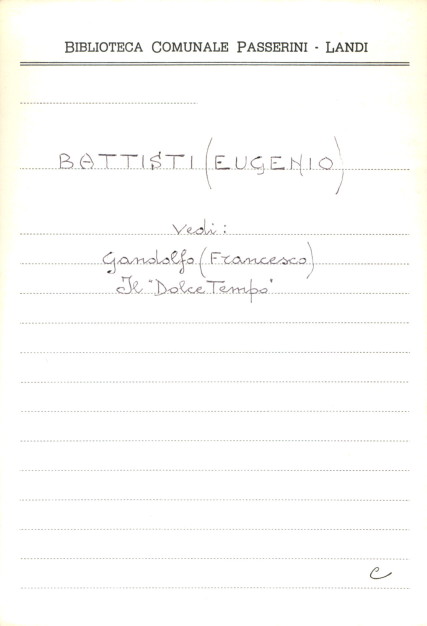 BIBLIOTECA COMUNALE PASSERINI - LANDI
BATTISTI (EUGENIO)
Vedi:
Gandolfo (Francesco)
Il "Dolce Tempo"
C